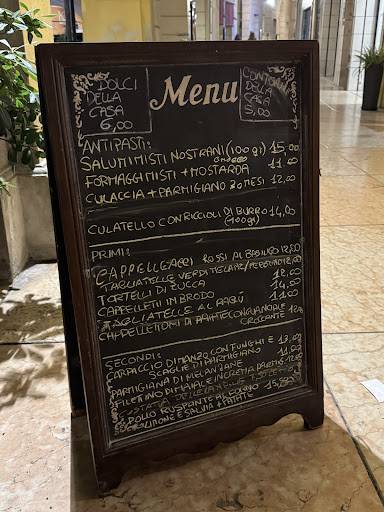 DOLCI
DELLA
CASA
6,00
Menu
CONTORNI
DELLA
CASA
5,00
ANTIPASTI:
SALUMI MISTI NOSTRANI (100gr) 15,00
FORMAGGI MISTI + MOSTARDA 11,00
CULACCIA + PARMIGIANO 30 MESI 12,00
CULATELLO CON RICCIOLI DI BURRO 14,00
(100gr)
PRIMI:
ROSSI AL BASILICO 12,00
TAGLIATELLE VERDI
TORTELLI DI ZUCCA 12,00
CAPPELLETTI IN BRODO 14,00
TAGLIATELLE AL RAGÙ 11,00
CROCCANTE
SECONDI:
CARPACCIO DI MANZO CON FUNGHI E 13,00
SCAGLIE DI PARMIGIANO
PARMIGIANA DI MELANZANE 11,00
FILETTINO DI MAIALE IN CREMA
POLLO RUSPANTE AL FORNO 15,50
LIMONE E SALVIA + PATATE